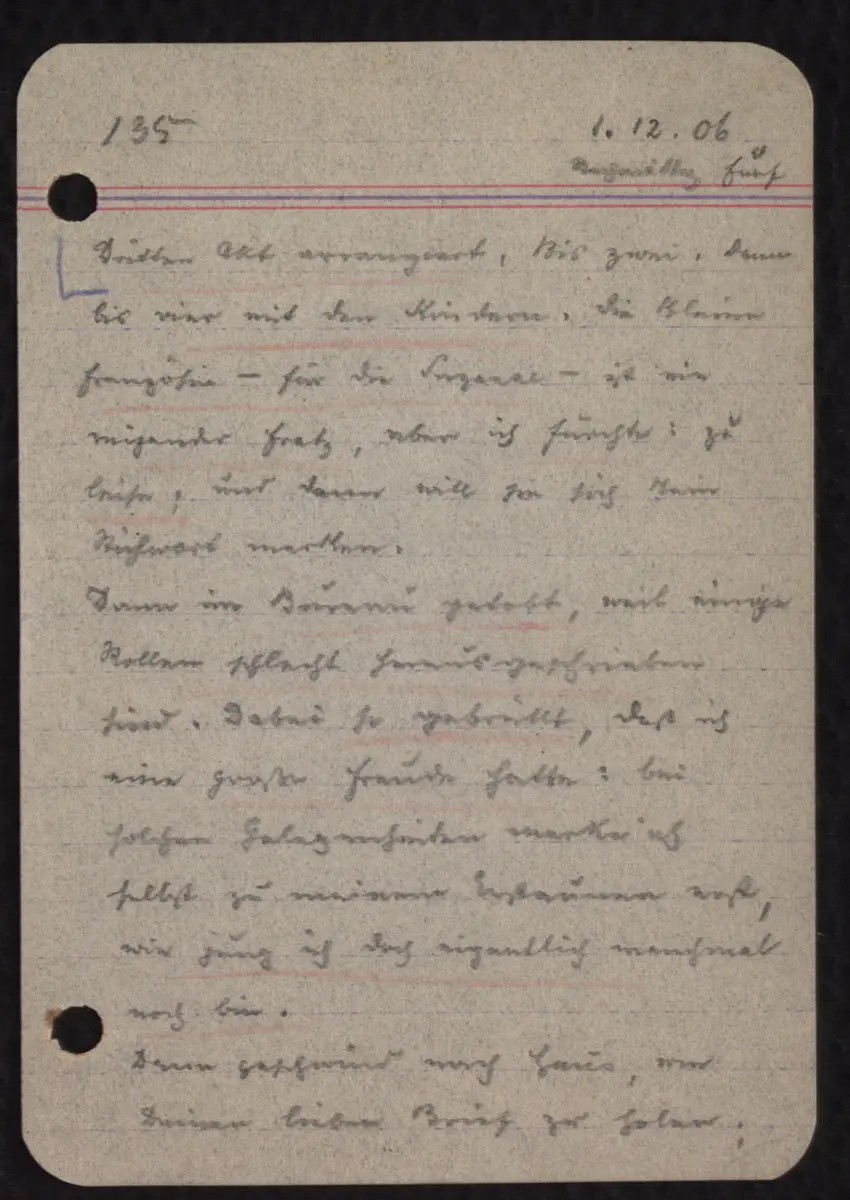 135
1. 12. 06
Nachmittag fünf
Dritten Akt arrangiert, bis zwei. Dann
bis vier mit den Kindern. Die kleine
Französin – für die – ist ein
reizender Fratz, aber ich fürchte: zu
leise; und dann will sie sich kein
Stichwort merken.
Dann im Bureau getobt, weil einige
Rollen schlecht herausgeschrieben
sind. Dabei so gebrüllt, daß ich
eine große Freude hatte: bei
solchen Gelegenheiten merke ich
selbst zu meinem Erstaunen erst,
wie jung ich doch eigentlich manchmal
noch bin.
Dann geschwind nach Haus, um
Deinen lieben Brief zu holen;